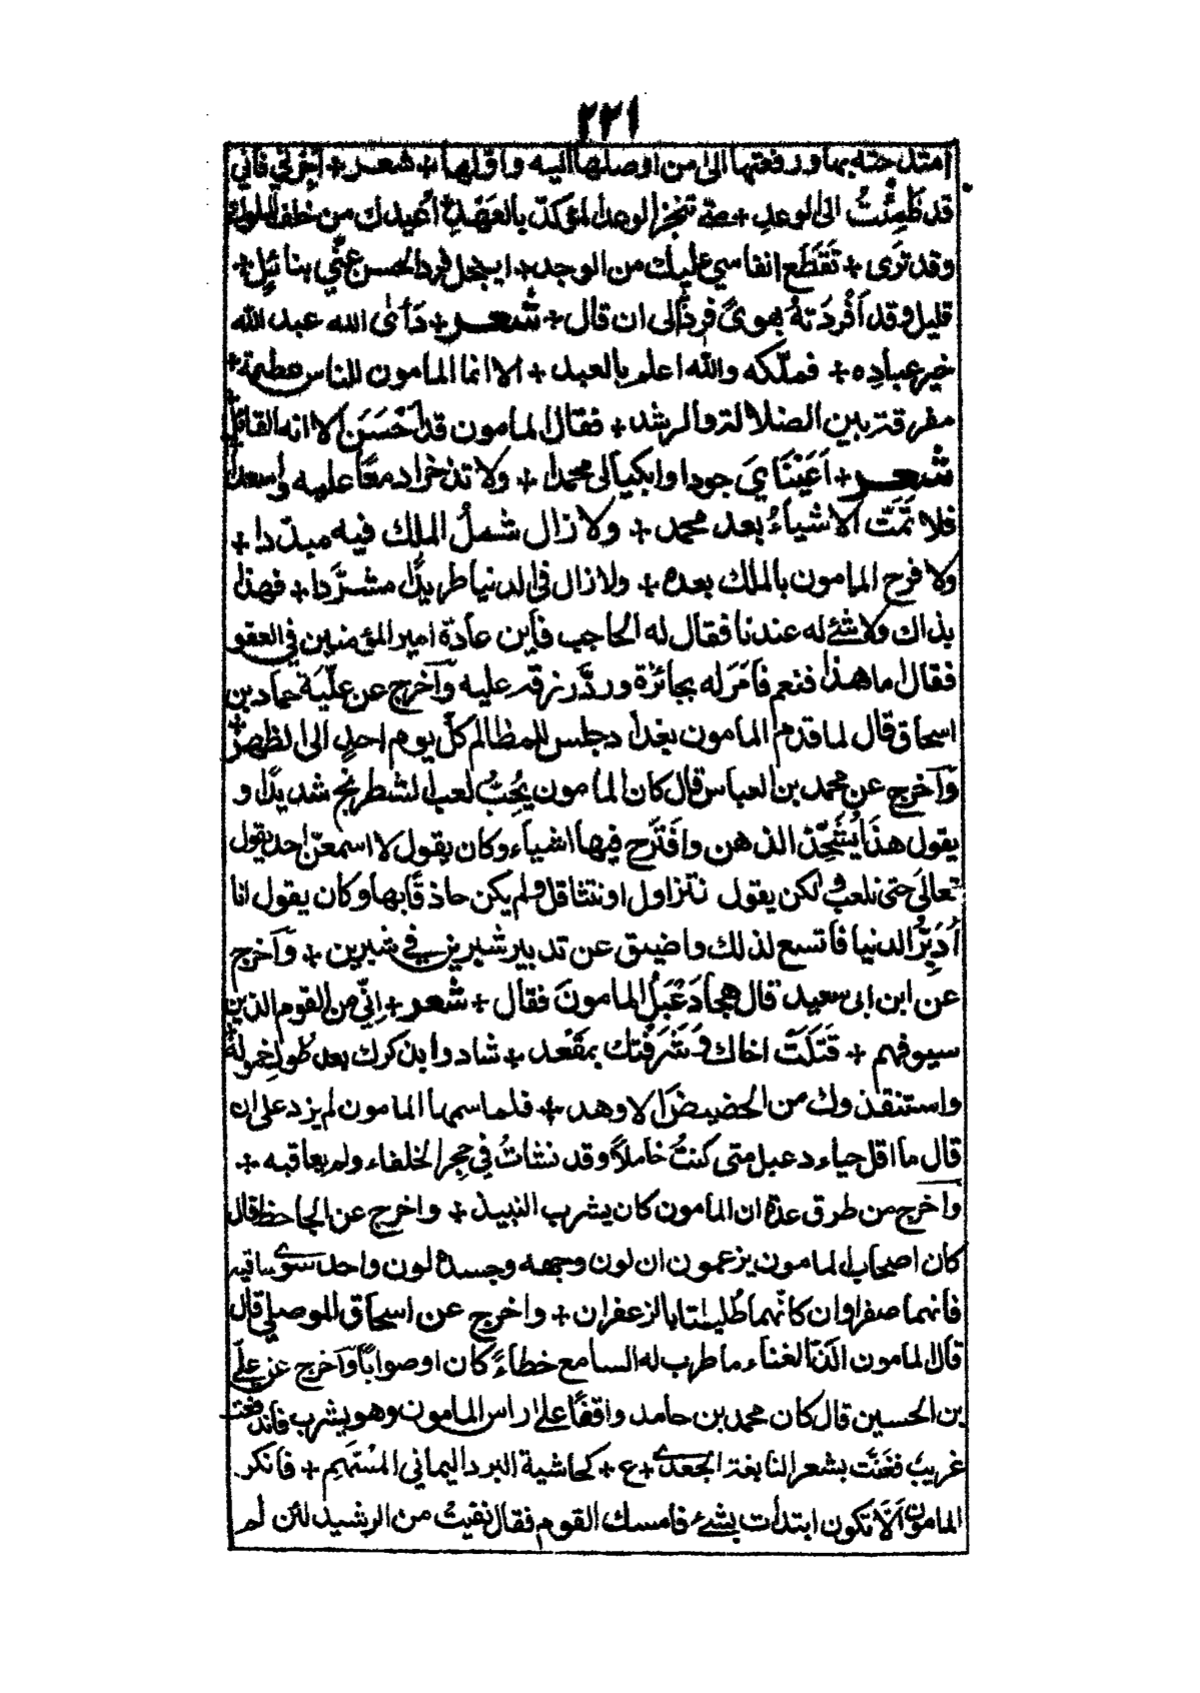 ٢٢١
امتدحته بها ورفعتها الى من اوصلها اليه واولها + شعر + اجزني فاني
قد ظَمِئْتُ الى الوعدِ + متى تنجز الوعد المؤكد بالعَهْدِ + اُعيذك من خلف الملوك
وقد ترى + تَقَطُّع انفاسي عليك من الوجد + ايبخل فرد الحسن عنّي بنائلٍ +
قليل وقد اَفْرَدْتهُ بهوىً فردٍ الى ان قال + شعر + رَأى الله عبد الله
خير عبادِه + فملّكه والله اعلم بالعبد + الا انما المامون للناس عصمة +
مفرقة بين الضلالة والرشد + فقال المامون قد اَحْسَنَ الا انه القائل
شعر + اَعَيْنَايَ جودا وابكيا لى محمدا + ولا تذخرا دمعًا عليه واسعدا
فلا تَمَّتِ الاشياءُ بعد محمد + ولا زال شملُ الملك فيه مبدّدا +
ولا فرح المامون بالملك بعده + ولا زال فى الدنيا طريدًا مشرَّدا + فهذا
بذاك ولا شئ له عندنا فقال له الحاجب فاَين عادة امير المؤمنين فى العفو
فقال اما هذا فنعم فاَمَرَ له بجائزة وردَّ رزقه عليه وَاَخرج عن علّيَة حماد بن
اسحاق قال لما قدم المامون بغداد جلس للمظالم كلّ يوم احدٍ الى الظهر +
وَاَخرج عن محمد بن العباس قال كان المامون يُحِبُّ لعب الشطرنج شديدًا و
يقول هذا يُشَحِّذ الذهن واقترح فيها اشياء وكان يقول لا اسمعنّ احد يقول
تعالَى حتى نلعب ولكن يقول نتزاول او نتثاقل ولم يكن حاذقًا بها وكان يقول انا
اُدَبِّرُ الدنيا فاتسع لذلك واضيق عن تدبير شبرين في شبرين + وَاَخرج
عن ابن ابى سعيد قال هجا دِعْبَلُ المامونَ فقال + شعر + اِنّي من القوم الذين
سيوفهم + قَتَلَتْ اخاك وَشَرَفَتْك بمقْعد + شادوا بذكرك بعد طول خموله
واستنقذوك من الحضيضَ الاوهد + فلما سمها المامون لم يزد على ان
قال ما اقل حياء دعبل متى كنتُ خاملاً وقد نشاتُ في حِجر الخلفاء ولم يعاقبه +
واَخرج من طرق عدّة ان المامون كان يشرب النبيذ + واخرج عن الجاحظ قال
كان اصحاب المامون يزعمون ان لون وجهه وجسده لون واحد سوى ساقيه
فانهما صفراوان كانّهما طُليتا بالزعفران + واخرج عن اسحاق الموصلي قال
قال المامون الَذّ الغناء ما طرب له السامع خطاءً كان او صوابًا وَاَخرج عن علي
بن الحسين قال كان محمد بن حامد واقفًا على راس المامون وهو يشرب فاندفعت
غريبُ فغنَت بشعر النابغة الجعدى + ع + كحاشية البرد اليماني المُسَهَّمِ + فاَنكر
المامون اَلّا تكون ابتدأت بشئ فأمسك القوم فقال نفيتُ من الرشيد لئن لم